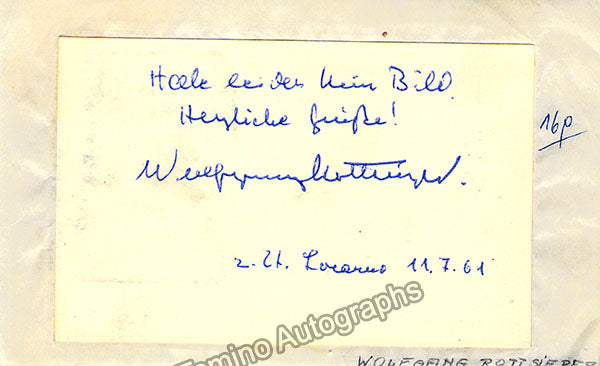 Habe leider kein Bild.
Herzliche Grüße!
16p
Wolfgang Rottsieper.
z. Zt. Locarno 11.7.61
Tamino Autographs
WOLFGANG ROTTSIEPER